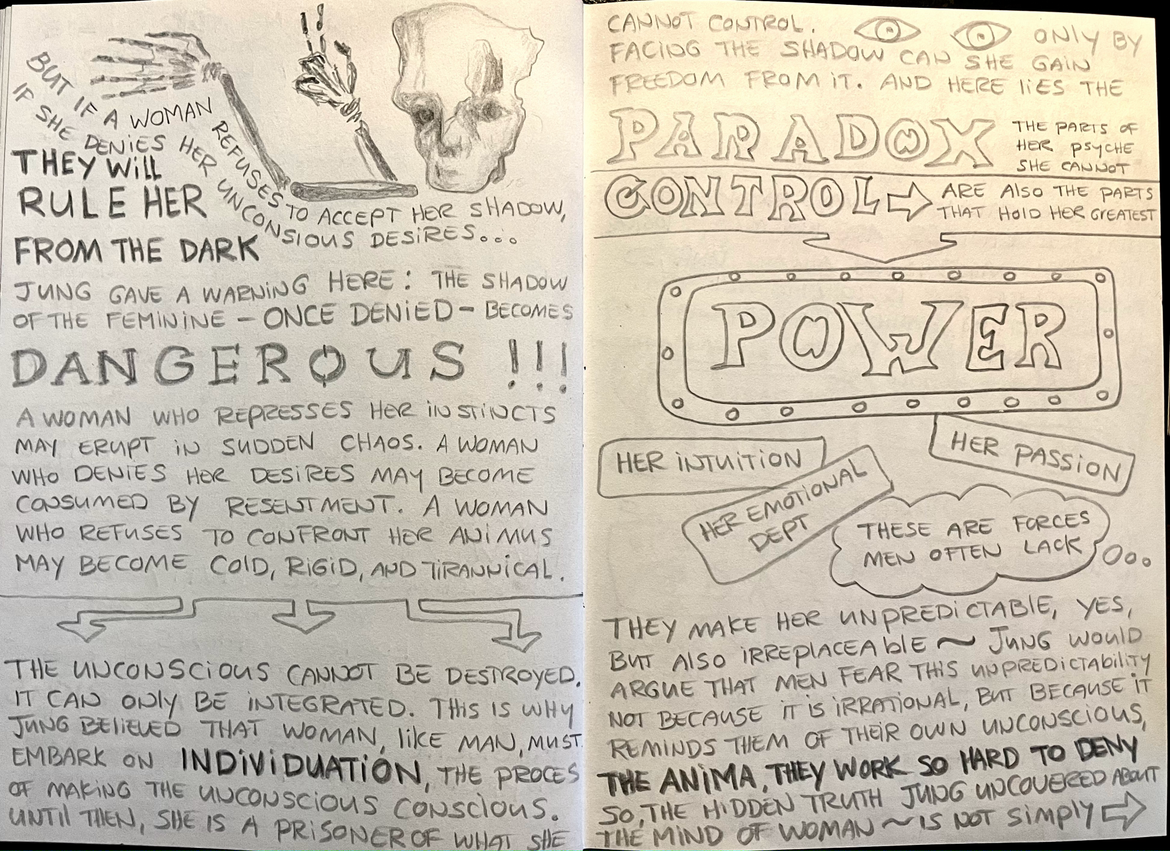 BUT IF A WOMAN REFUSES TO ACCEPT HER SHADOW,
IF SHE DENIES HER UNCONSIOUS DESIRES...
THEY WILL
RULE HER
FROM THE DARK
JUNG GAVE A WARNING HERE: THE SHADOW
OF THE FEMININE – ONCE DENIED – BECOMES
DANGEROUS !!!
A WOMAN WHO REPRESSES HER INSTINCTS
MAY ERUPT IN SUDDEN CHAOS. A WOMAN
WHO DENIES HER DESIRES MAY BECOME
CONSUMED BY RESENTMENT. A WOMAN
WHO REFUSES TO CONFRONT HER ANIMUS
MAY BECOME COLD, RIGID, AND TIRANNICAL.
THE UNCONSCIOUS CANNOT BE DESTROYED.
IT CAN ONLY BE INTEGRATED. THIS IS WHY
JUNG BELIEVED THAT WOMAN, LIKE MAN, MUST
EMBARK ON INDIVIDUATION, THE PROCES
OF MAKING THE UNCONSCIOUS CONSCIOUS.
UNTIL THEN, SHE IS A PRISONER OF WHAT SHE
CANNOT CONTROL. ONLY BY
FACING THE SHADOW CAN SHE GAIN
FREEDOM FROM IT. AND HERE LIES THE
PARADOX
THE PARTS OF
HER PSYCHE
SHE CANNOT
CONTROL
ARE ALSO THE PARTS
THAT HOLD HER GREATEST
POWER
HER INTUITION
HER PASSION
HER EMOTIONAL
DEPT
THESE ARE FORCES
MEN OFTEN LACK
THEY MAKE HER UNPREDICTABLE, YES,
BUT ALSO IRREPLACEABLE ~ JUNG WOULD
ARGUE THAT MEN FEAR THIS UNPREDICTABILITY
NOT BECAUSE IT IS IRRATIONAL, BUT BECAUSE IT
REMINDS THEM OF THEIR OWN UNCONSCIOUS,
THE ANIMA, THEY WORK SO HARD TO DENY
SO, THE HIDDEN TRUTH JUNG UNCOVERED ABOUT
THE MIND OF WOMAN ~ IS NOT SIMPLY